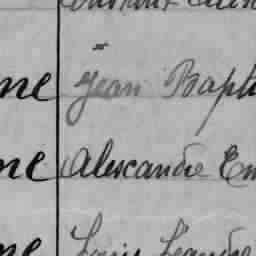 ne Jean Bapti
ne Alexandre Em
ne Louis Leandre